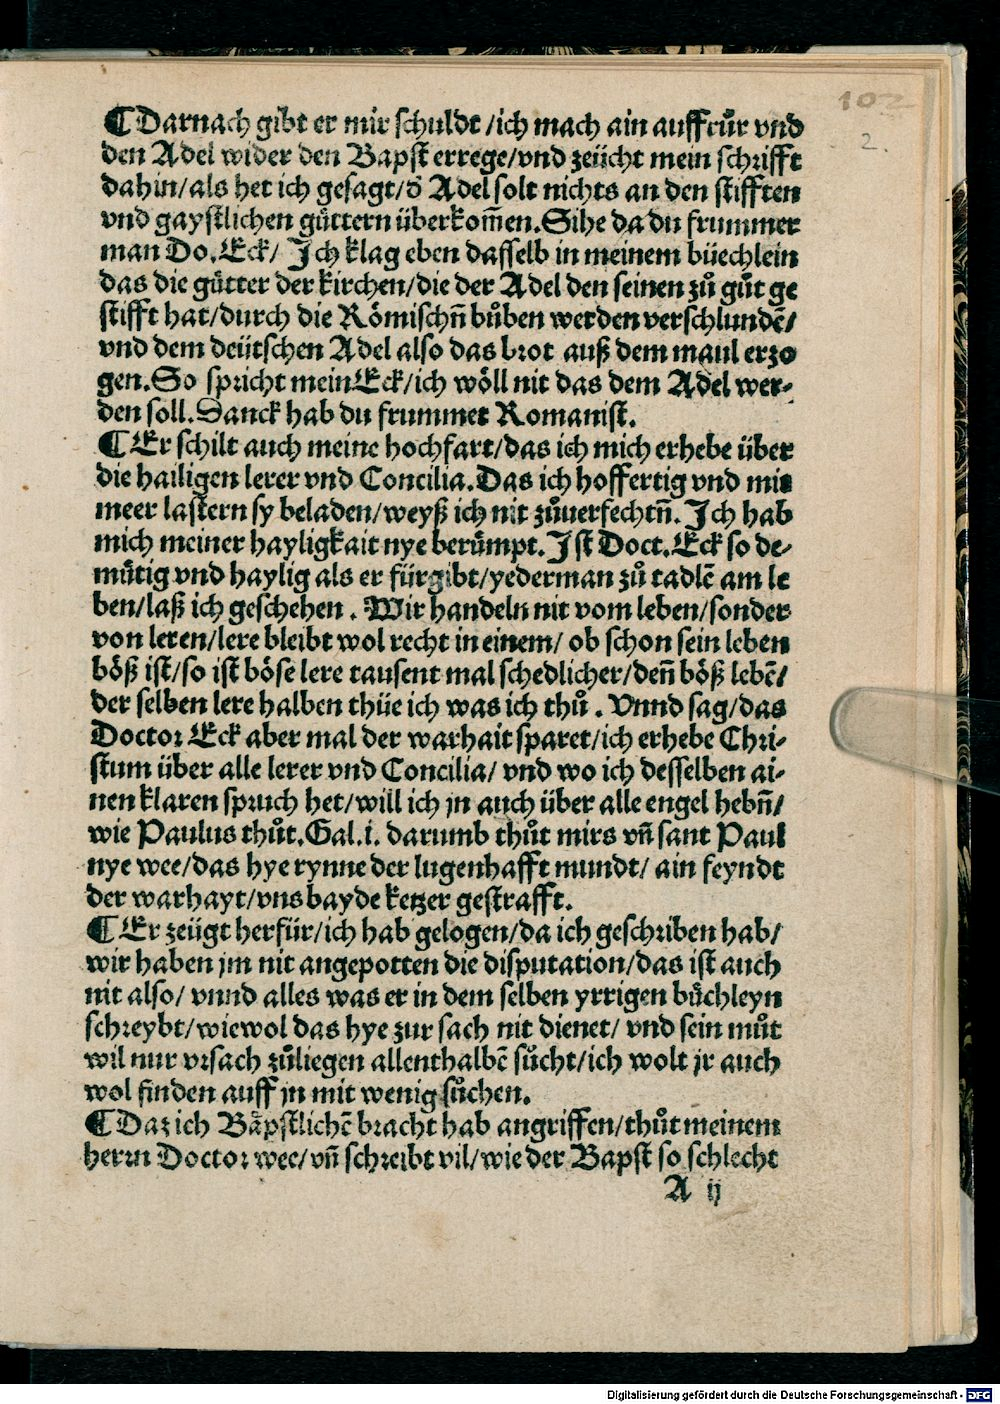 102
2.
¶ Darnach gibt er mir schuldt /ich mach ain auffrůr vnd
den Adel wider den Bapst errege/vnd zeücht mein schrifft
dahin/als het ich gesagt/ð Adel solt nichts an den stifften
vnd gaystlichen guͤttern überkom̃en.Sihe da du frummer
man Do.Eck/ Ich klag eben dasselb in meinem büechlein
das die guͤtter der kirchen/die der Adel den seinen zů gůt ge
stifft hat/durch die Roͤmischñ bůben werden verschlundẽ/
vnd dem deütschen Adel also das brot auß dem maul erzo
gen.So spricht mein Eck/ich woͤll nit das dem Adel wer-
den soll.Danck hab du frummer Romanist.
¶ Er schilt auch meine hochfart/das ich mich erhebe über
die hailigen lerer vnd Concilia.Das ich hoffertig vnd mit
meer lastern sy beladen/weyß ich nit zůuerfechtñ. Ich hab
mich meiner hayligkait nye beruͤmpt. Ist Doct.Eck so de-
muͤtig vnd haylig als er fürgibt/yederman zů tadlẽ am le
ben/laß ich geschehen . Wir handeln nit vom leben/sonder
von leren/lere bleibt wol recht in einem/ ob schon sein leben
boͤß ist/so ist boͤse lere tausent mal schedlicher/deñ boͤß lebẽ/
der selben lere halben thüe ich was ich thů . Vnnd sag/das
Doctor Eck aber mal der warhait sparet/ich erhebe Chri-
stum über alle lerer vnd Concilia/ vnd wo ich desselben ai-
nen klaren spruch het/will ich jn auch über alle engel hebñ/
wie Paulus thůt.Gal.i. darumb thůt mirs vñ sant Paul
nye wee/das hye rynne der lugenhafft mundt/ ain feyndt
der warhayt/vns bayde ketzer gestrafft.
¶ Er zeügt herfür/ich hab gelogen/da ich geschriben hab/
wir haben jm nit angepotten die disputation/das ist auch
nit also/ vnnd alles was er in dem selben yrrigen buͤchleyn
schreybt/wiewol das hye zur sach nit dienet/ vnd sein můt
wil nur vrsach zůliegen allenthalbẽ sůcht/ich wolt jr auch
wol finden auff jn mit wenig sůchen.
¶ Daz ich Baͤpstlichẽ bracht hab angriffen/thůt meinem
herrn Doctor wee/vñ schreibt vil/wie der Bapst so schlecht
A ij
Digitalisierung gefördert durch die Deutsche Forschungsgemeinschaft - DFG